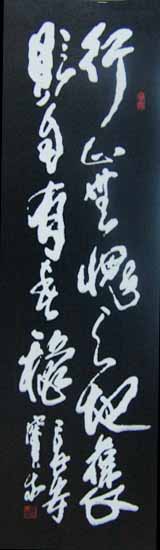 行止無愧天地褒
貶自有春龝